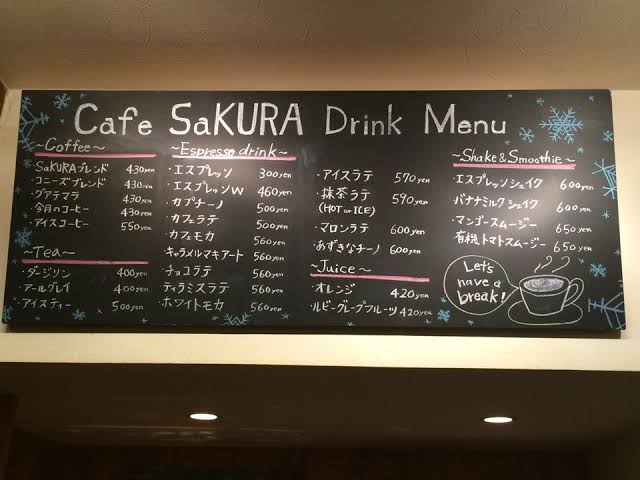 Cafe SaKURA Drink Menu
~Coffee~
SaKURAブレンド 430yen
・コニーズブレンド 430yen
・グアテマラ 430yen
・今月のコーヒー 430yen
・アイスコーヒー 550yen
~Tea~
・ダージリン 400yen
・アールグレイ 400yen
・アイスティー 500yen
~Espresso drink~
・エスプレッソ 300yen
・エスプレッソW 460yen
・カプチーノ 500yen
・カフェラテ 500yen
・カフェモカ 560yen
・キャラメルマキアート 560yen
・チョコラテ 560yen
・ティラミスラテ 560yen
・ホワイトモカ 560yen
・アイスラテ 570yen
・抹茶ラテ 590yen
(HOT or ICE)
・マロンラテ 600yen
・あずきなチーノ 600yen
~Juice~
・オレンジ 420yen
・ルビーグレープフルーツ 420yen
~Shake&Smoothie~
・エスプレッソシェイク 600yen
・バナナミルクシェイク 600yen
・マンゴースムージー 650yen
・有機トマトスムージー 650yen
Let's
have a
break!